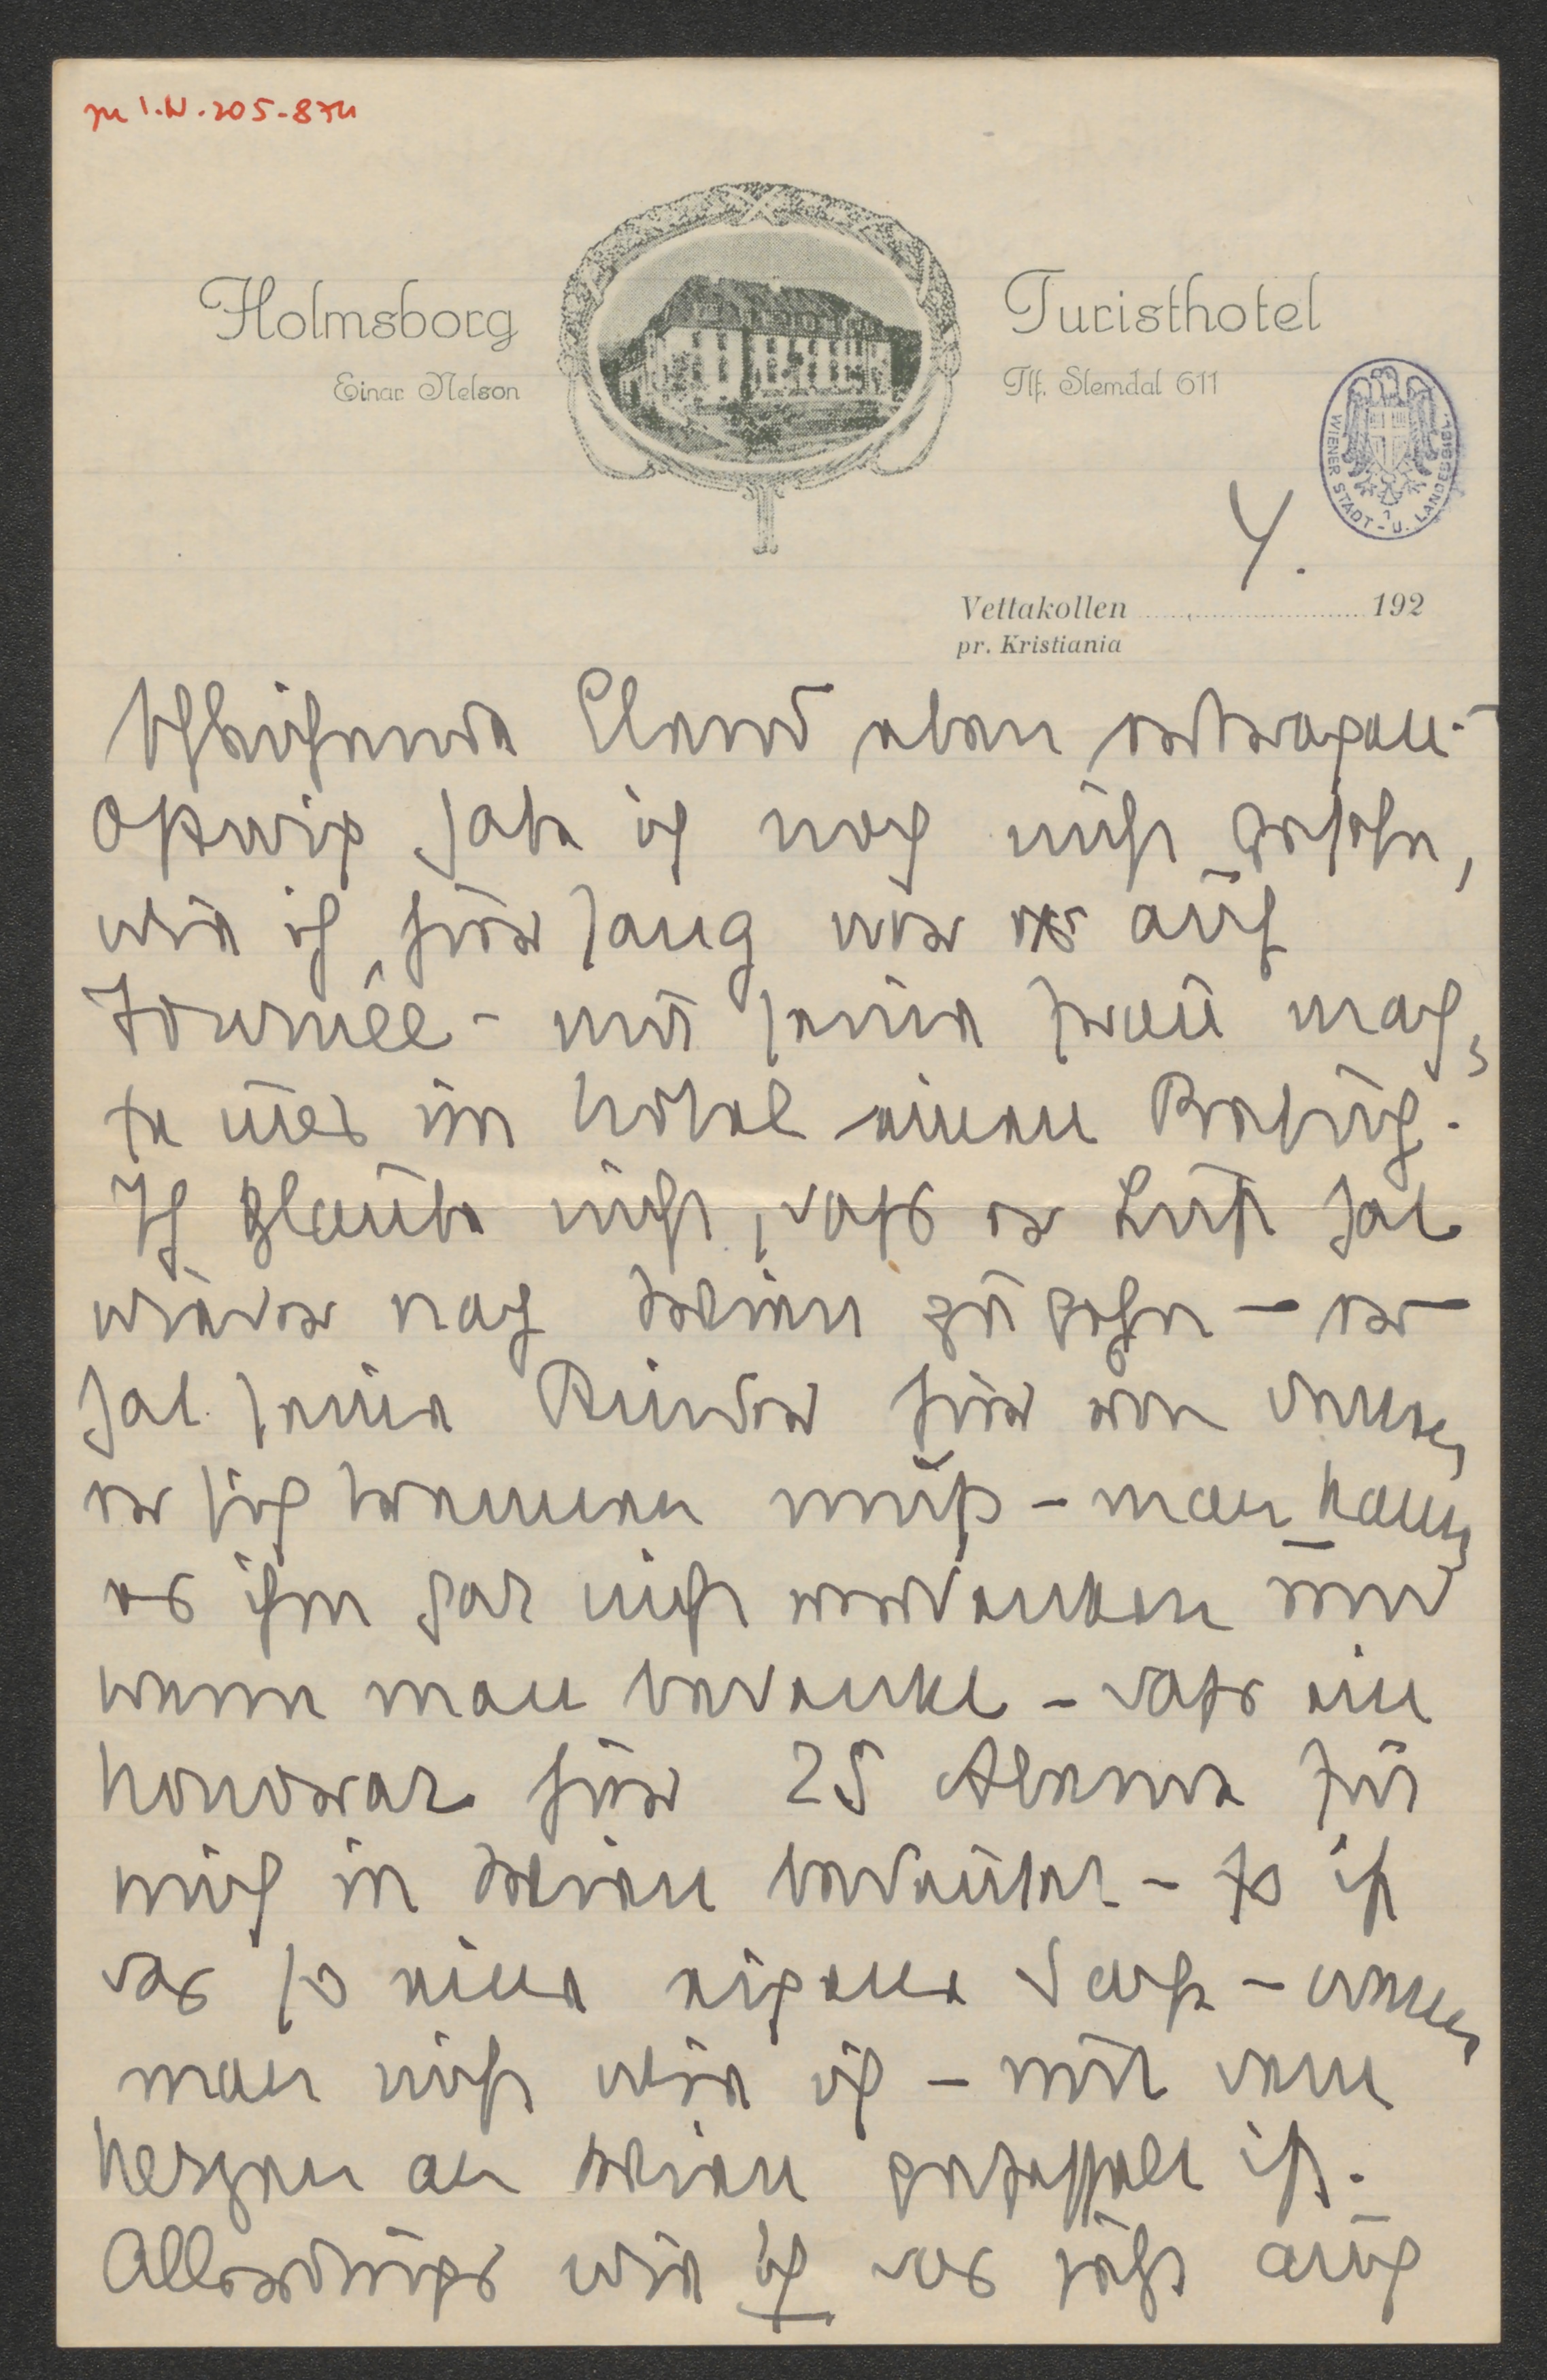 zu I.N. 205.874
Holmsborg Turisthotel
Einar Nelson Tlf. Slemdal 611
WIENER STADT- U. LANDESBIBL.
4.
Vettakollen 192
pr. Kristiania
schleichende Elend eben ertragen.-
habe ich noch nicht gesehn,
wie ich hier sang war er auf
Tournée - nur seine Frau mach=
te uns im Hotel einen Besuch.
Ich glaube nicht, dass er Lust hat
wieder nach Wien zu gehn - er
hat seine Kinder hier von denen
er sich trennen muß - man kann
es ihm gar nicht verdenken und
wenn man bedenkt - dass ein
Honorar hier 25 Abende für
mich in Wien bedeutet - so ist
das so eine eigene Sache - wenn
man nicht wie ich - mit dem
Herzen an Wien gefesselt ist.
Allerdings wie ich das jetzt auch